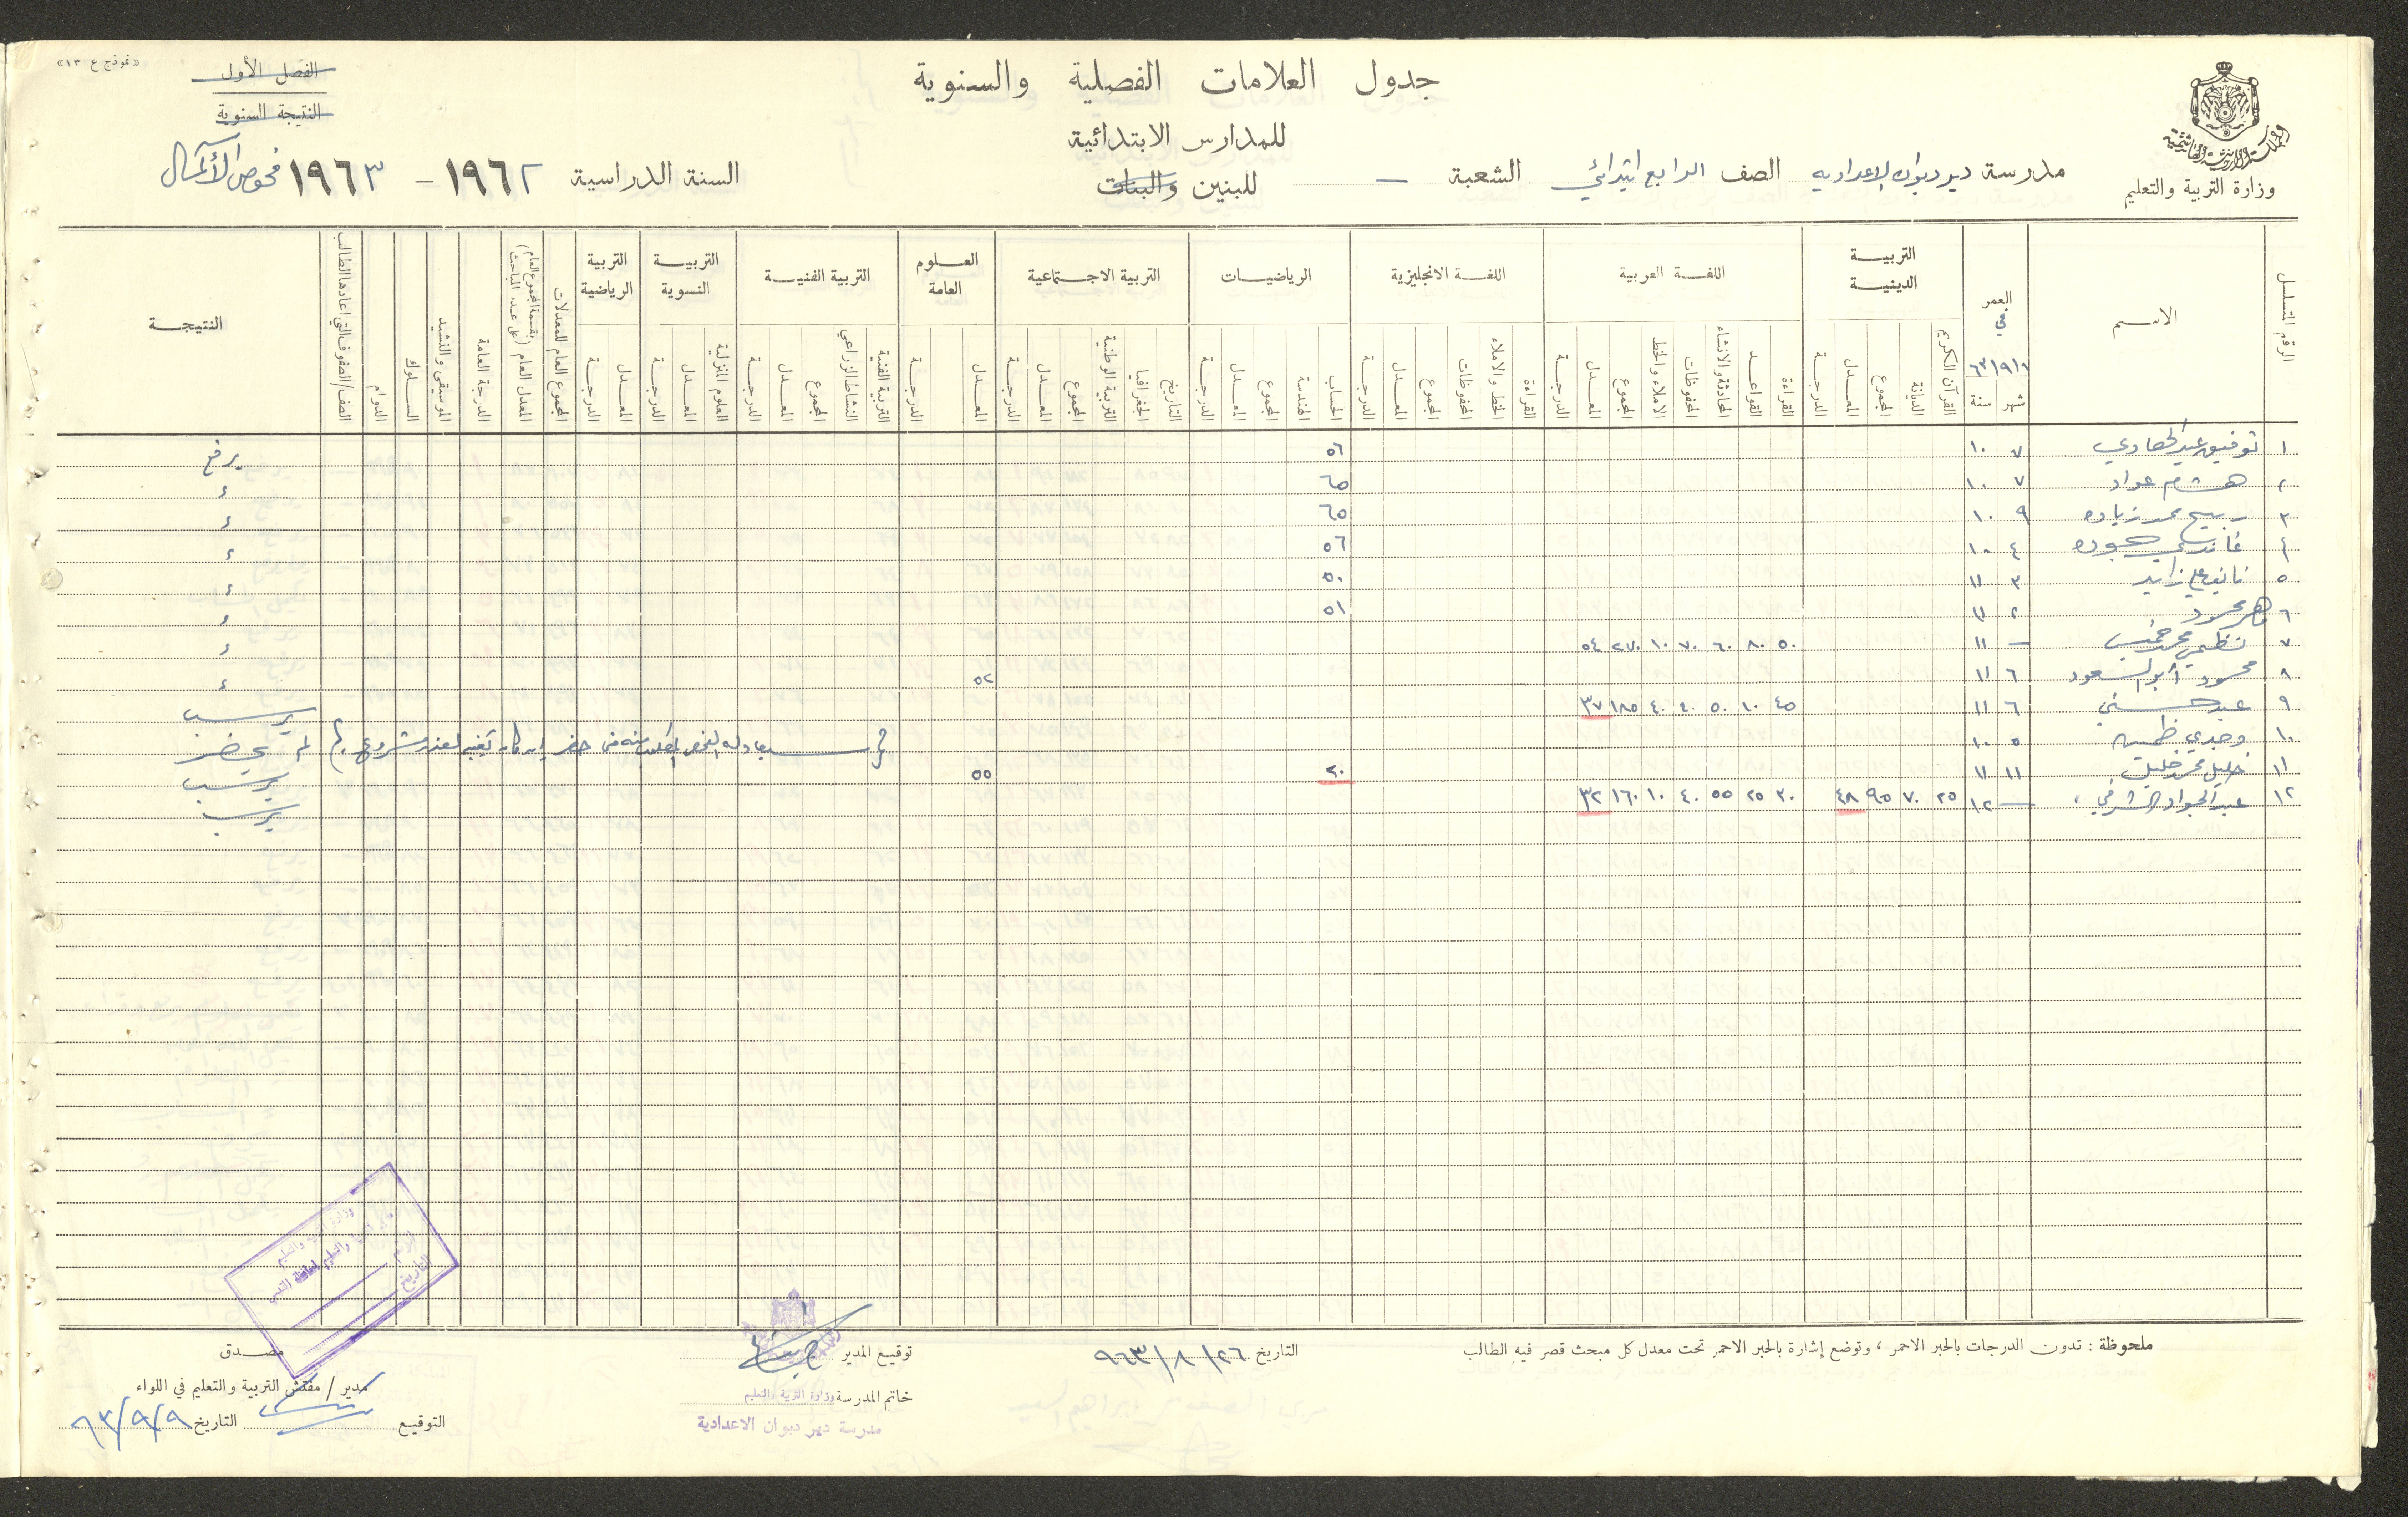 «نموذج ع ١٣»
الفصل الأول
النتيجة السنوية
جدول العلامات الفصلية والسنوية
للمدارس الابتدائية
للبنين والبنات
المملكة الأردنية الهاشمية
وزارة التربية والتعليم
مدرسة ديردبوان الاعداديه الصف الرابع ابتدائي الشعبة —
السنة الدراسية ١٩٦٢ – ١٩٦٣ فحوص الأكمال
الرقم المتسلسل
الاسم
العمر في ١/٩/٦٣
شهر سنة
التربية الدينية
القرآن الكريم الديانة المجموع المعدل الدرجة
اللغة العربية
قراءة القواعد المحادثة والانشاء المحفوظات الاملاء والخط المجموع المعدل الدرجة
اللغة الانجليزية
القراءة الخط والاملاء المحفوظات المجموع المعدل الدرجة
الرياضيات
الحساب الهندسة المجموع المعدل الدرجة
التربية الاجتماعية
التاريخ الجغرافيا التربية الوطنية المجموع المعدل الدرجة
العلوم العامة
المعدل الدرجة
التربية الفنية
التربية الفنية النشاط الزراعي المجموع المعدل الدرجة
التربية النسوية
العلوم المنزلية المعدل الدرجة
التربية الرياضية
المعدل الدرجة
المجموع العام للمعدلات
المعدل العام (بقسمة المجموع العام على عدد المباحث)
الدرجة العامة
الموسيقى والنشيد
السلوك
الدوام
الصف/الصفوف التي اعادها الطالب
النتيجة
١ توفيق عبد الهادي ٧ ١٠ ٥٦ يرفع
٢ هشام عواد ٧ ١٠ ٦٥ ء
٣ ربيح محمد زياده ٩ ١٠ ٦٥ ء
٤ ٤ ١٠ ٥٦ ء
٥ نايف علي زايد ٣ ١١ ٥٠ ء
٦ ماهر محمود ٢ ١١ ٥١ ء
٧ نظمي محمد خميس — ١١ ٥٠ ٨٠ ٦٠ ٧٠ ١٠ ٢٧٠ ٥٤ ء
٨ محمود أبو السعود ٦ ١١ ٥٢ ء
٩ عبد حسني ٦ ١١ ٤٥ ١٠ ٥٠ ٤٠ ٤٠ ١٨٥ ٣٧ يرسب
١٠ وجدي ٥ ١٠ لم يحضر
١١ خليل محمد خليل ١١ ١١ ٢٠ ٥٥ يرسب
١٢ عبد الجواد الشرفي — ١٢ ٢٥ ٧٠ ٩٥ ٤٨ ٣٠ ٢٥ ٥٥ ٤٠ ١٠ ١٦٠ ٣٢ يرسب
ملحوظة : تدون الدرجات بالحبر الاحمر ، وتوضع إشارة بالحبر الاحمر تحت معدل كل مبحث قصر فيه الطالب
التاريخ ٢٦/٨/٩٦٣
توقيع المدير
خاتم المدرسة
وزارة التربية والتعليم
مدرسة دير دبوان الاعدادية
وزارة التربية والتعليم
التربية والتعليم لمحافظة القدس
الرقم
التاريخ
مصدق
مدير / مفتش التربية والتعليم في اللواء
التوقيع التاريخ ٩/٩/٦٣